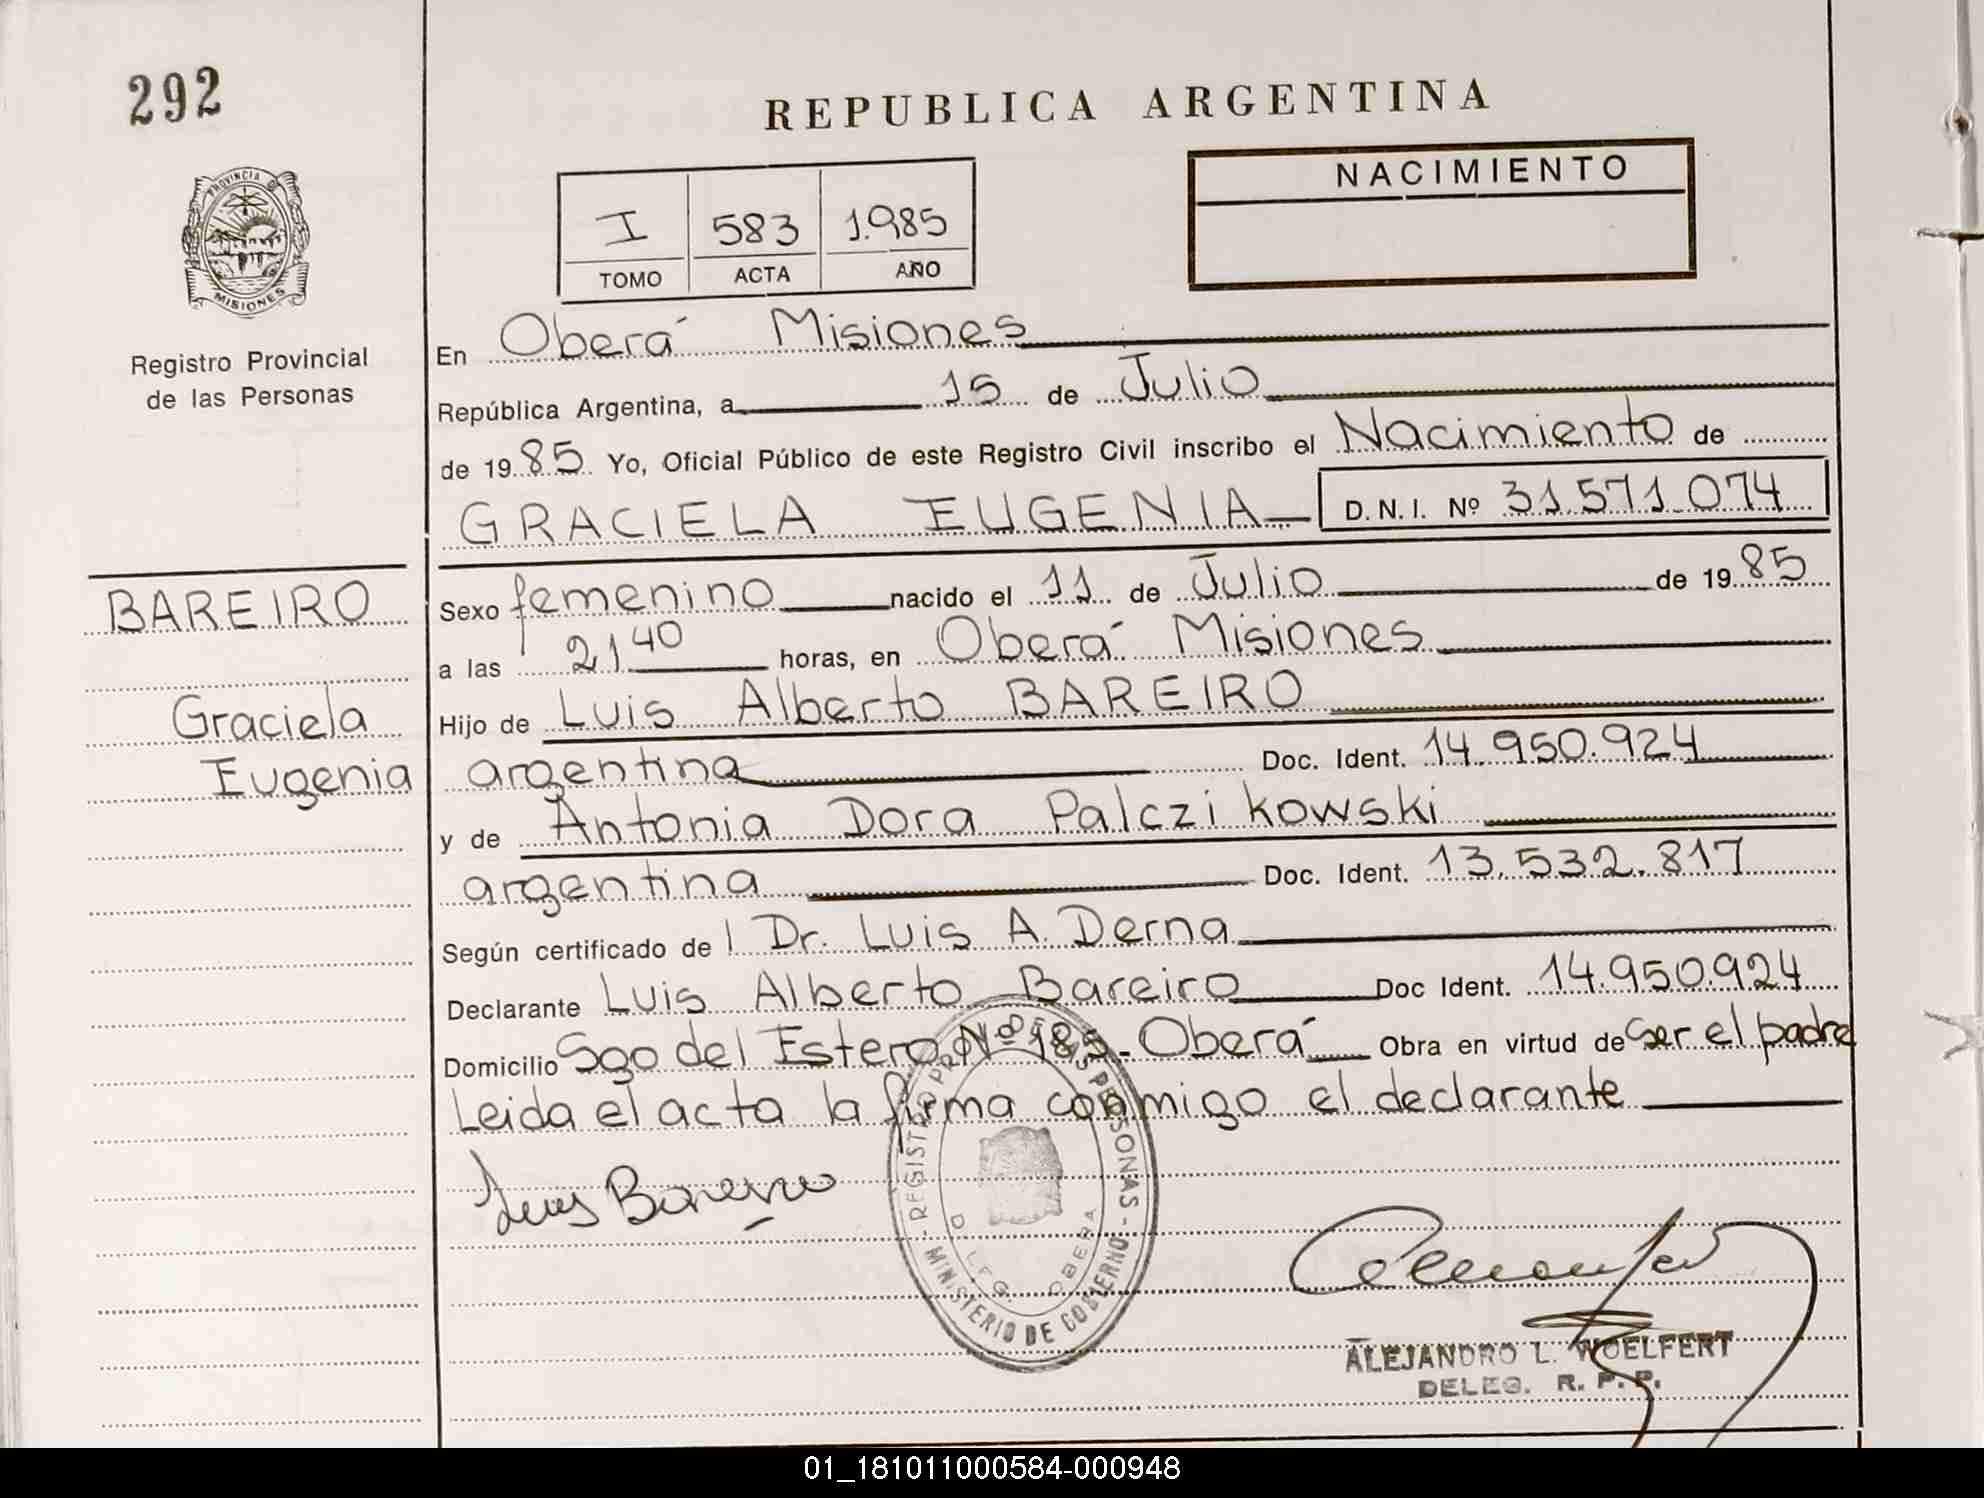 292
REPUBLICA ARGENTINA
PROVINCIA DE
MISIONES
Registro Provincial
de las Personas
I 583 1.985
TOMO ACTA AÑO
NACIMIENTO
En Oberá Misiones
República Argentina, a 15 de Julio
de 1985 Yo, Oficial Público de este Registro Civil inscribo el Nacimiento de
GRACIELA EUGENIA D.N.I. Nº 31.571.074
BAREIRO
Graciela
Eugenia
Sexo femenino nacido el 11 de Julio de 1985
a las 21 40 horas, en Oberá Misiones
Hijo de Luis Alberto BAREIRO
argentina Doc. Ident. 14.950.924
y de Antonia Dora Palczikowski
argentina Doc. Ident. 13.532.817
Según certificado de l Dr. Luis A. Derna
Declarante Luis Alberto Bareiro Doc Ident. 14.950.924
Domicilio Sgo del Estero Nº 185 - Oberá Obra en virtud de ser el padre
Leida el acta la firma conmigo el declarante
Luis Bareiro
- REGISTRO PROV. DE LAS PERSONAS -
MINISTERIO DE GOBIERNO
OBERA
ALEJANDRO L. WOELFERT
DELEG. R. P. P.
01_181011000584-000948